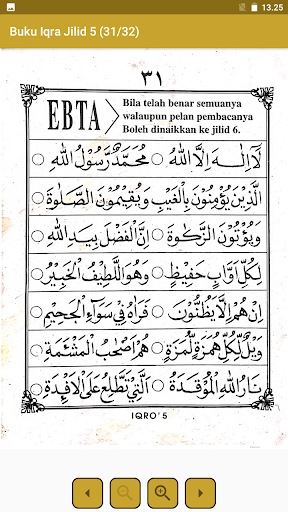 13.25
Buku Iqra Jilid 5 (31/32)
٣١
EBTA
Bila telah benar semuanya
walaupun pelan pembacanya
Boleh dinaikkan ke jilid 6.
لَآ اِلٰهَ اِلَّا اللهُ ○ مُحَمَّدٌ رَّسُوْلُ اللهِ ○
الَّذِيْنَ يُؤْمِنُوْنَ بِالْغَيْبِ وَيُقِيْمُوْنَ الصَّلٰوةَ ○
وَيُؤْتُوْنَ الزَّكٰوةَ ○ اِنَّ الْفَضْلَ بِيَدِ اللهِ ○
لِكُلِّ اَوَّابٍ حَفِيْظٍ ○ وَهُوَ اللَّطِيْفُ الْخَبِيْرُ ○
اِنْ هُمْ اِلَّا يَظُنُّوْنَ ○ فَرَاٰهُ فِيْ سَوَآءِ الْجَحِيْمِ ○
وَيْلٌ لِّكُلِّ هُمَزَةٍ لُّمَزَةٍ ○ هُمْ اَصْحٰبُ الْمَشْئَمَةِ ○
نَارُ اللهِ الْمُوْقَدَةُ ○ الَّتِيْ تَطَّلِعُ عَلَى الْاَفْئِدَةِ ○
IQRO' 5